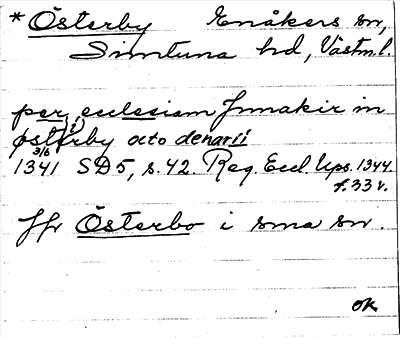 * Österby Enåkers sn,
Simtuna hd, Västm.l.
per ecclesiam Jnnakir in
østerby octo denarii
3/6
1341 SD5, s. 42. Reg. Eccl. Ups. 1344
f. 33 v.
Jfr Österbo i sma sn.
ok